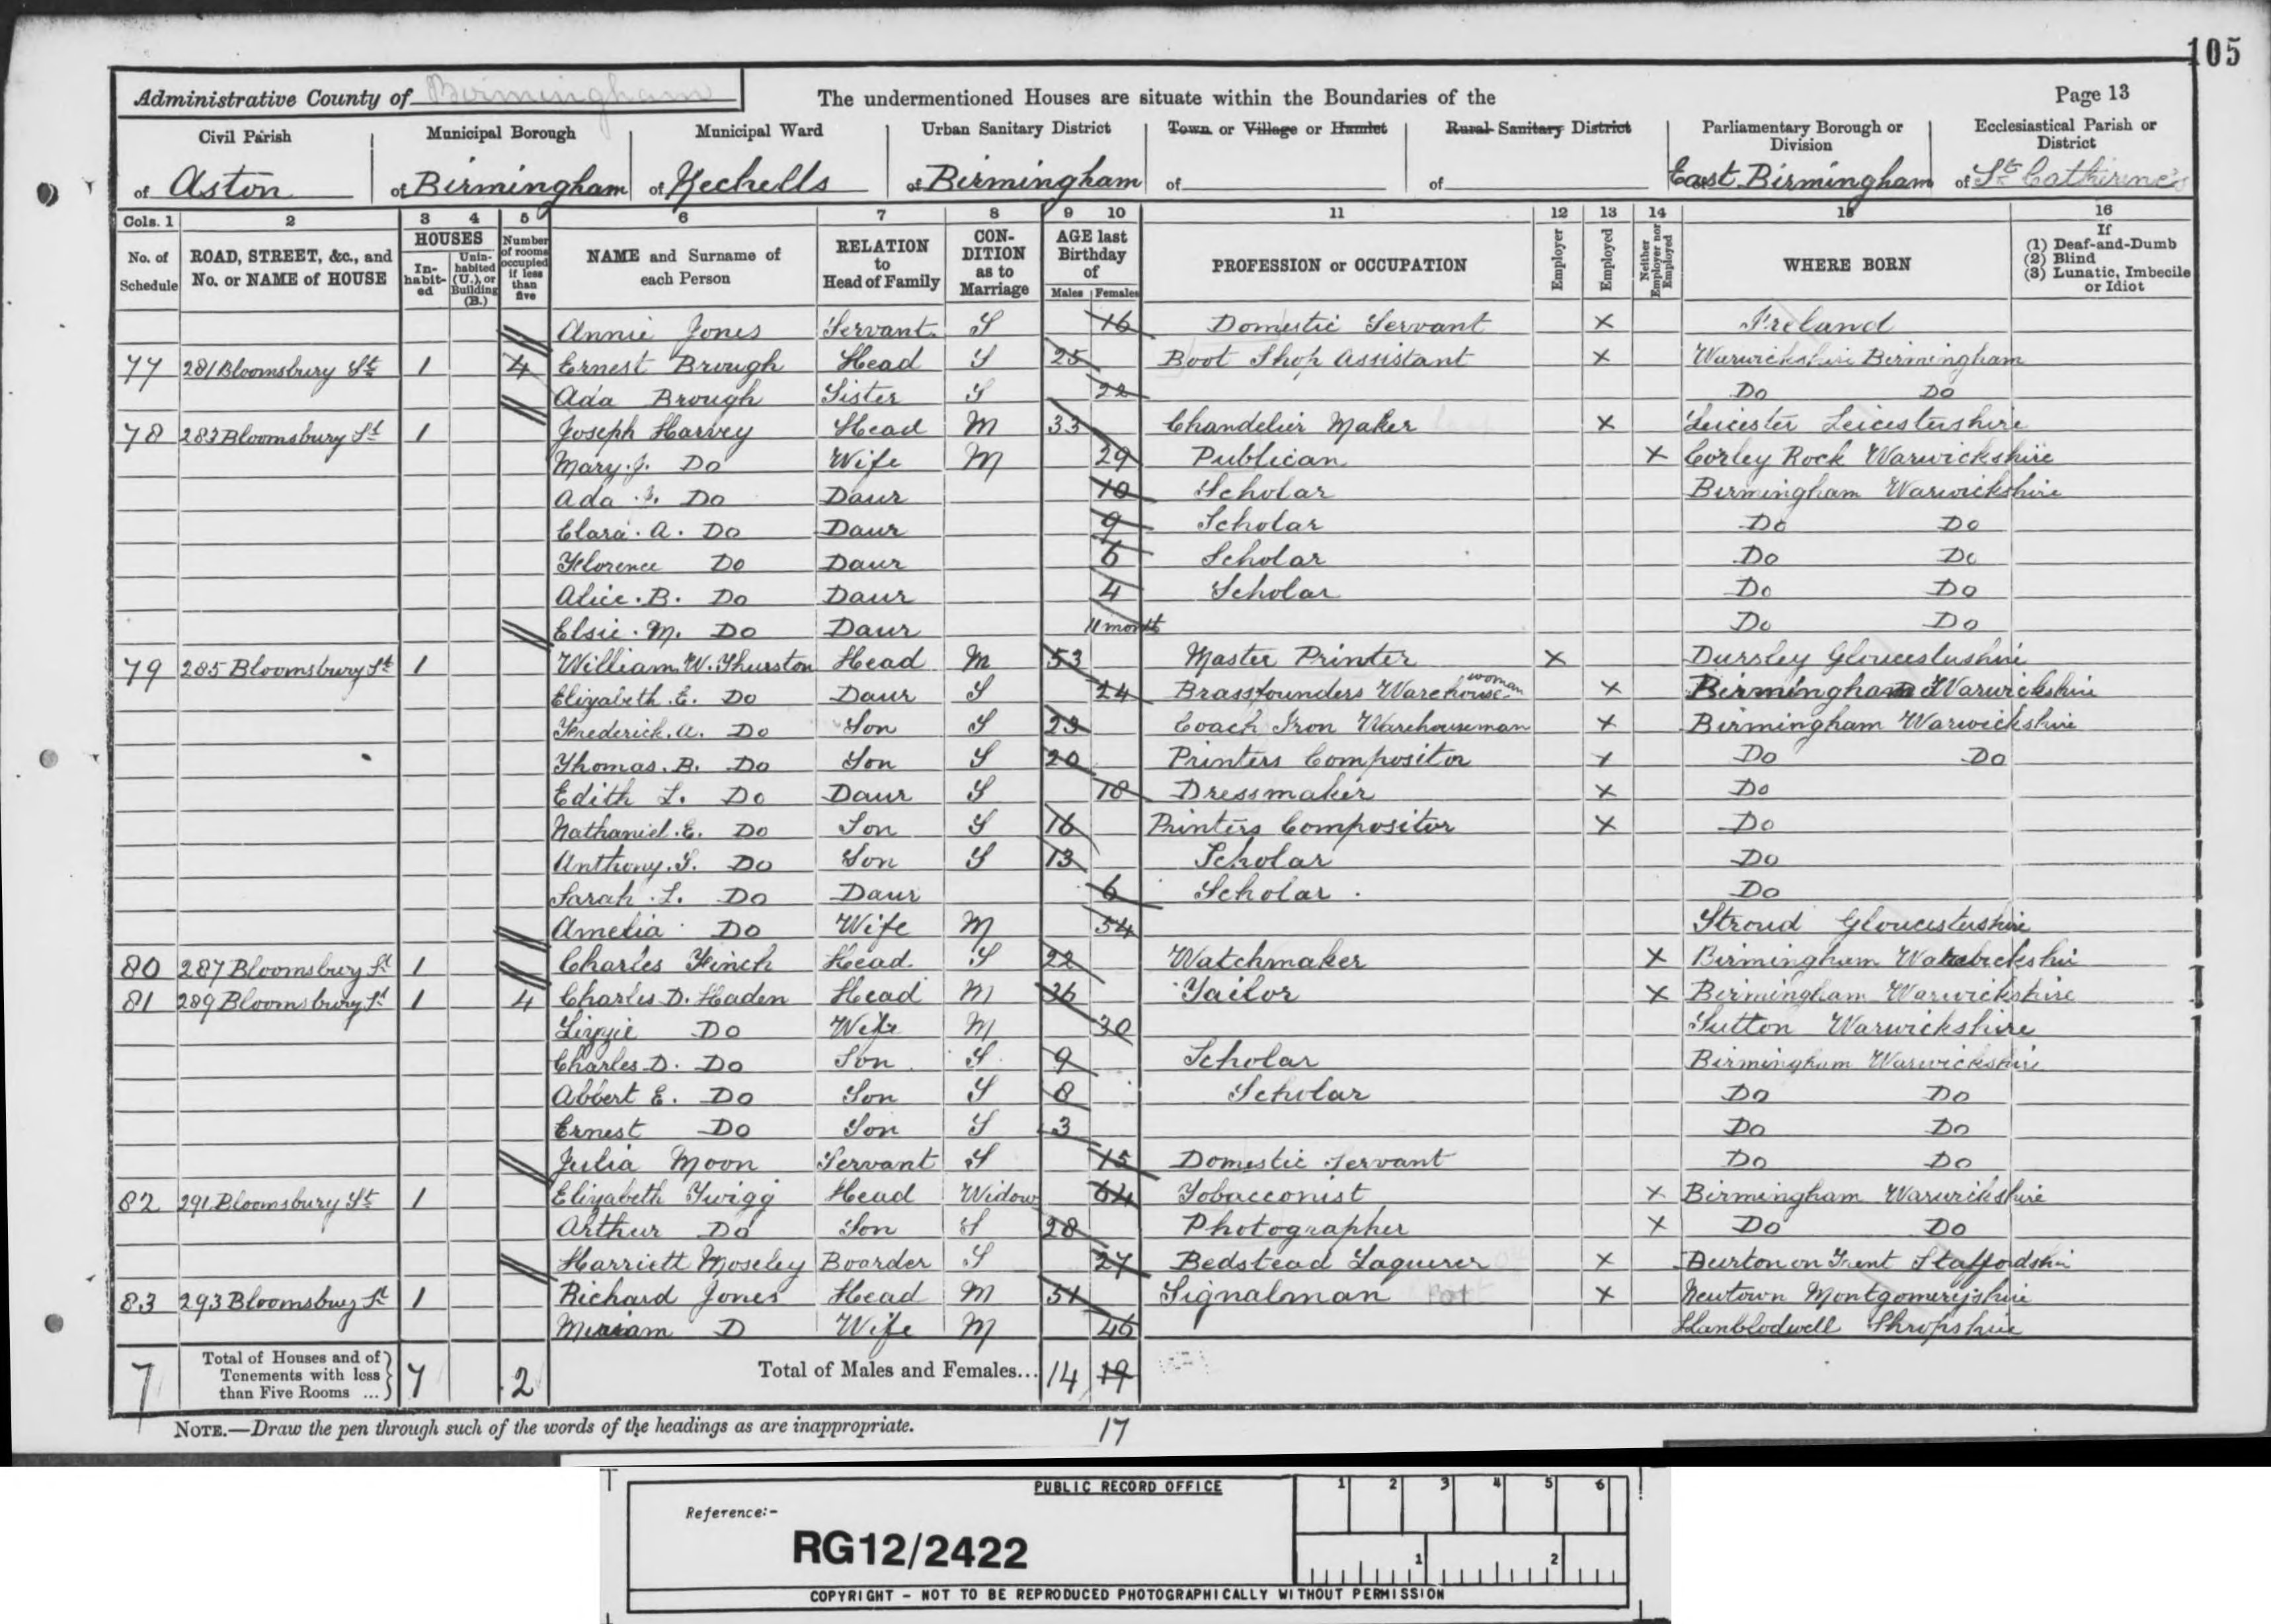 105
Administrative County of Birmingham The undermentioned Houses are situate within the Boundaries of the Page 13
Civil Parish Municipal Borough Municipal Ward Urban Sanitary District Town or Village or Hamlet Rural Sanitary District Parliamentary Borough or Division Ecclesiastical Parish or District
of Aston of Birmingham of Nechells of Birmingham of of East Birmingham of St Catherine's
Cols. 1 2 3 4 5 6 7 8 9 10 11 12 13 14 15 16
No. of Schedule ROAD, STREET, &c., and No. or NAME of HOUSE HOUSES In-habit-ed Unin-habited (U.), or Building (B.) Number of rooms occupied if less than five NAME and Surname of each Person RELATION to Head of Family CON-DITION as to Marriage AGE last Birthday of Males Females PROFESSION or OCCUPATION Employer Employed Neither Employer nor Employed WHERE BORN If (1) Deaf-and-Dumb (2) Blind (3) Lunatic, Imbecile or Idiot
Annie Jones Servant S 16 Domestic Servant X Ireland
77 281 Bloomsbury St 1 4 Ernest Brough Head S 25 Boot Shop Assistant X Warwickshire Birmingham
Ada Brough Sister S 22 Do Do
78 283 Bloomsbury St 1 Joseph Harvey Head M 33 Chandelier Maker X Leicester Leicestershire
Mary. J. Do Wife M 29 Publican X Corley Rock Warwickshire
Ada . Do Daur 10 Scholar Birmingham Warwickshire
Clara . A. Do Daur 9 Scholar Do Do
Florence Do Daur 6 Scholar Do Do
Alice . B. Do Daur 4 Scholar Do Do
Elsie . M. Do Daur 11 month Do Do
79 285 Bloomsbury St 1 William W. Thurston Head M 53 Master Printer X Dursley Gloucestershire
Elizabeth . E. Do Daur S 24 Brassfounders Warehouse woman X Birmingham Warwickshire
Frederick. A. Do Son S 23 Coach Iron Warehouseman X Birmingham Warwickshire
Thomas. B. Do Son S 20 Printers Compositor X Do Do
Edith L. Do Daur S 18 Dressmaker X Do
Nathaniel. E. Do Son S 16 Printers Compositor X Do
Anthony. S. Do Son S 13 Scholar Do
Sarah . L. Do Daur 6 Scholar . Do
Amelia Do Wife M 54 Stroud Gloucestershire
80 287 Bloomsbury St 1 Charles Finch Head S 22 Watchmaker X Birmingham
81 289 Bloomsbury St 1 4 Charles D. Haden Head M 36 Tailor X Birmingham Warwickshire
Lizzie Do Wife M 30 Sutton Warwickshire
Charles D. Do Son S 9 Scholar Birmingham Warwickshire
Abbert E. Do Son S 8 Scholar Do Do
Ernest Do Son S 3 Do Do
Julia Moon Servant S 15 Domestic Servant Do Do
82 291 Bloomsbury St 1 Elizabeth Twigg Head Widow 64 Tobacconist X Birmingham Warwickshire
Arthur Do Son S 28 Photographer X Do Do
Harriett Moseley Boarder S 27 Bedstead Laquerer X Burton on Trent Staffordshi
83 293 Bloomsbury St 1 Richard Jones Head M 51 Signalman X Newtown Montgomeryshire
Miriam D Wife M 46 Llanblodwell Shropshire
7 Total of Houses and of Tenements with less than Five Rooms ... 7 2 Total of Males and Females... 14 19
NOTE.—Draw the pen through such of the words of the headings as are inappropriate. 17
PUBLIC RECORD OFFICE 1 2 3 4 5 6
Reference:-
RG12/2422 1 2
COPYRIGHT - NOT TO BE REPRODUCED PHOTOGRAPHICALLY WITHOUT PERMISSION